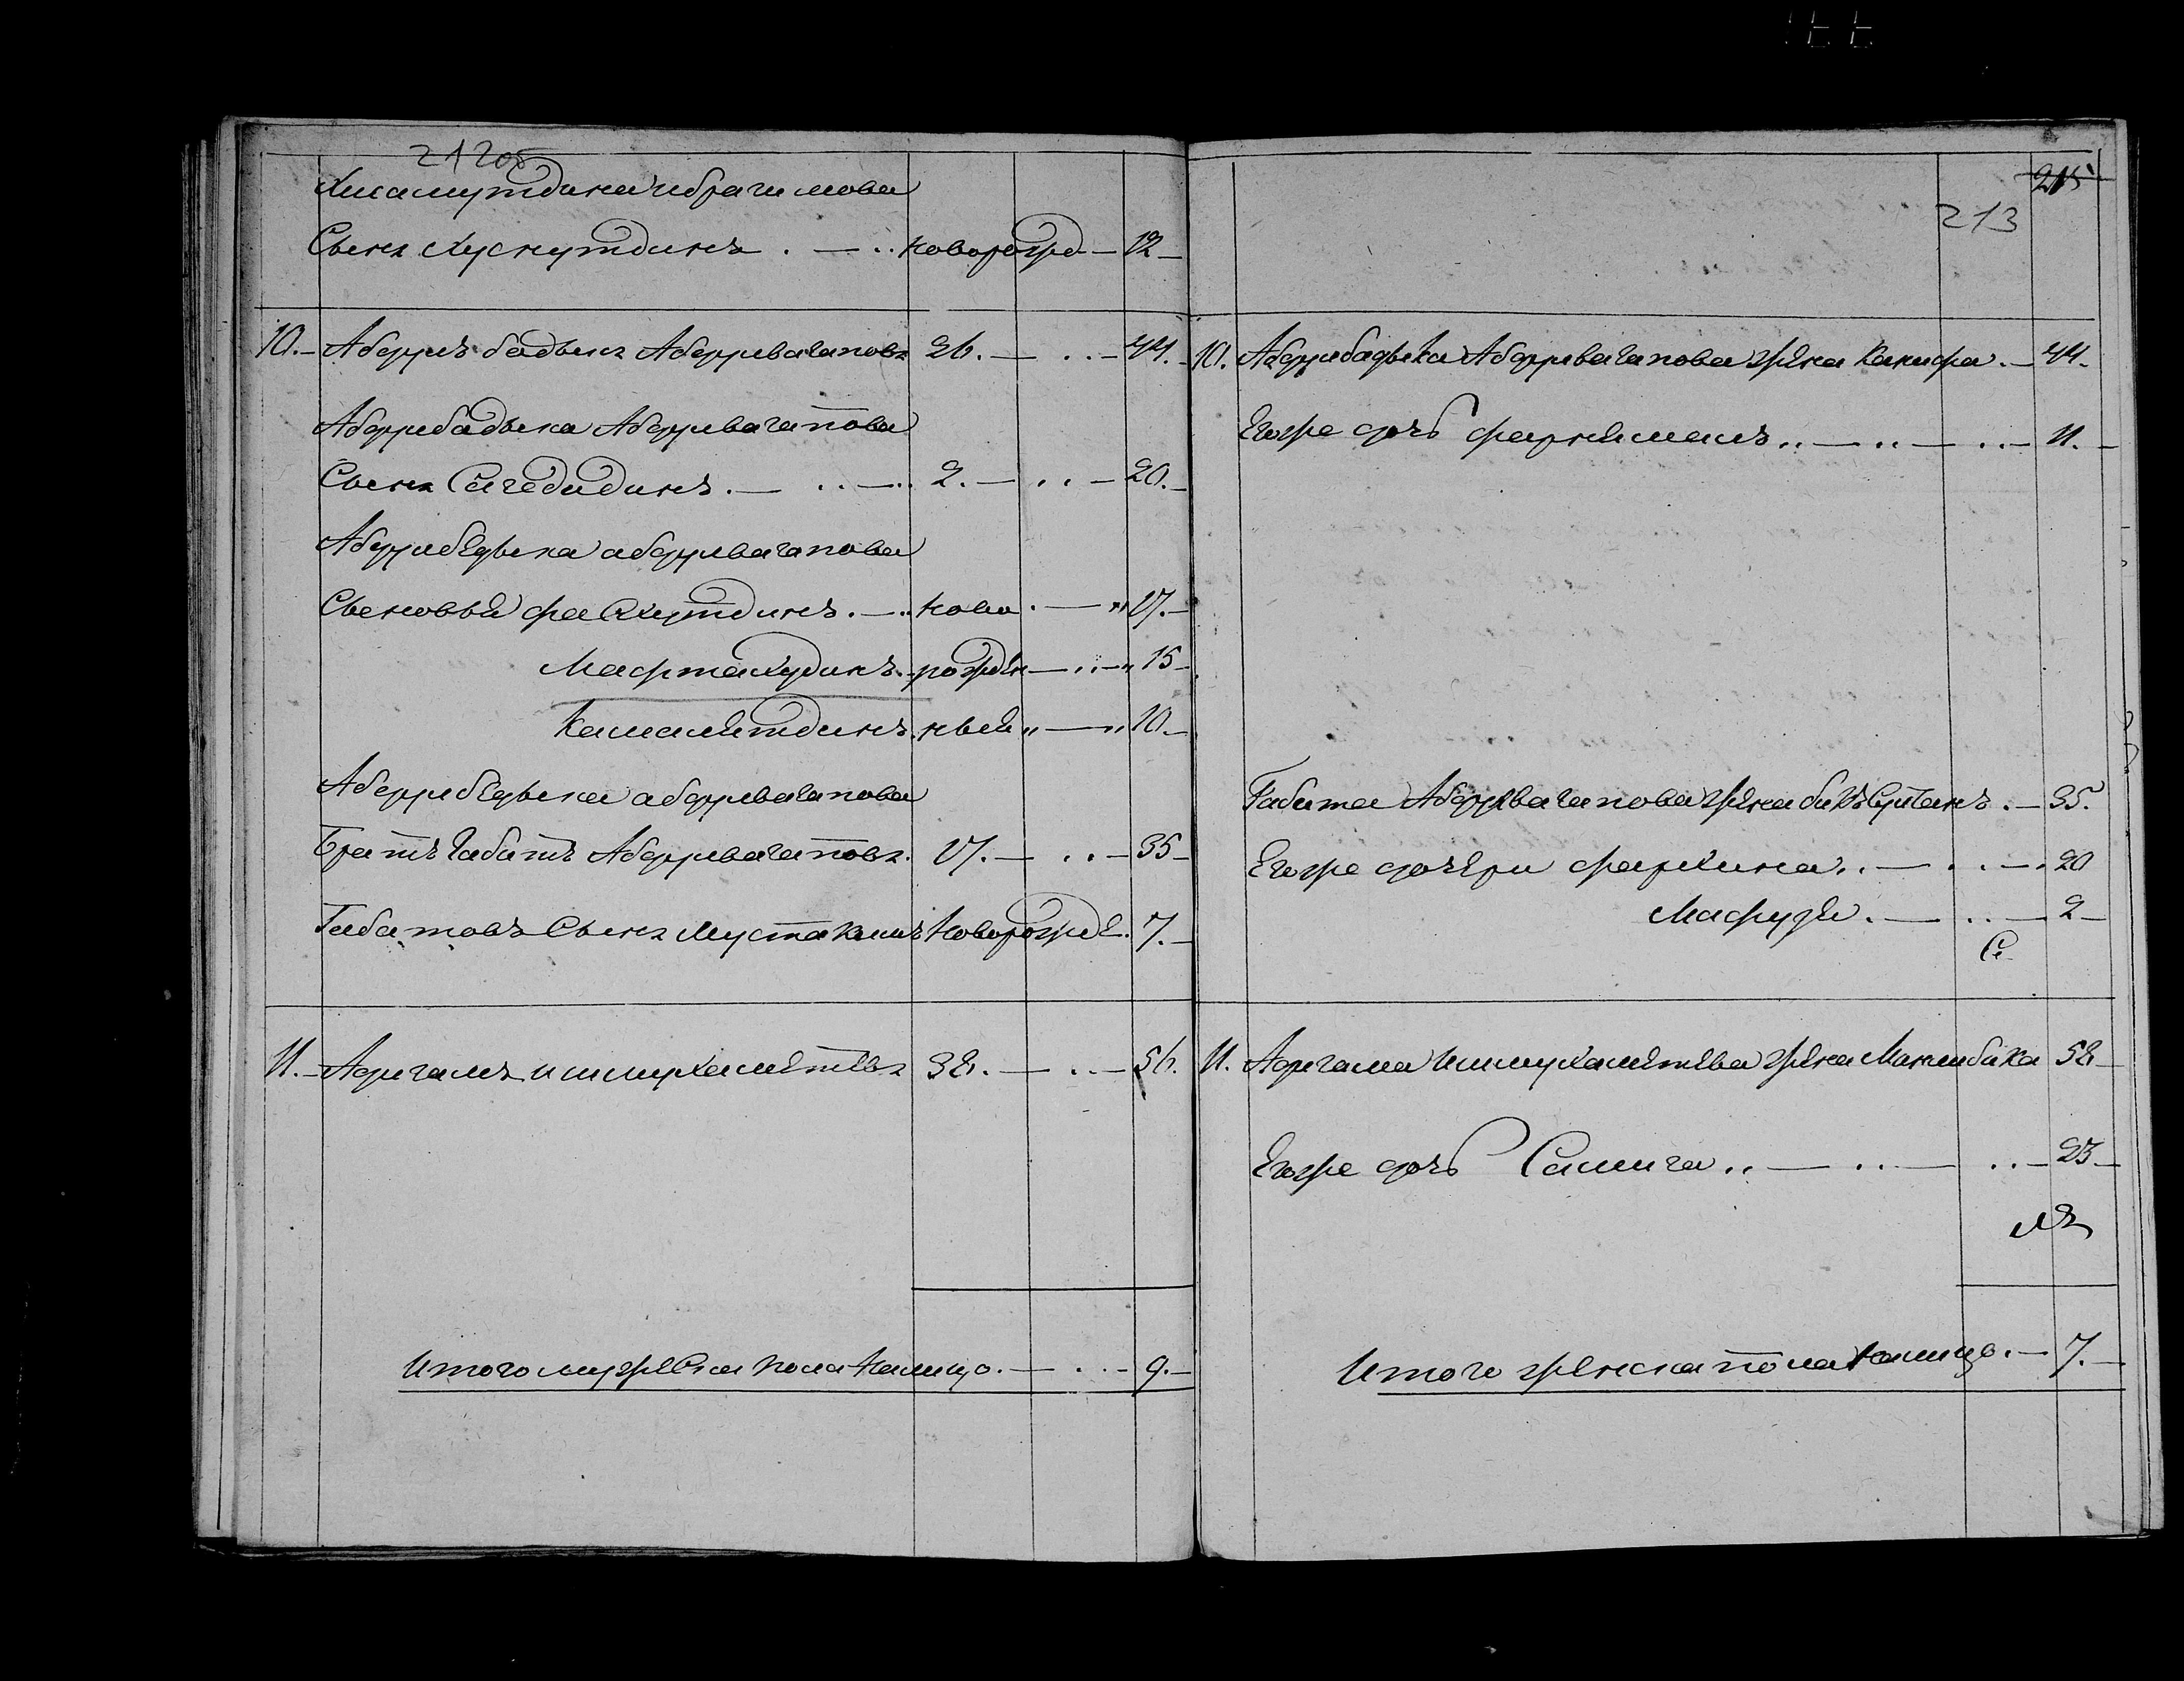 212об
Хисамутдина ибрагимова
Сынъ Хуснутдинъ . — .. новорожд — 12 —
10. — Абдулъ бадыкъ Абдулвагаповъ 26. — .. — 44. —
Абдулбадыка Абдулвагапова
Сынъ Сагедидинъ . — .. — .. 2. — .. — 20. —
Абдулбедыка абдулвагапова
Сыновья фасхутдинъ . — .. ново . — „ 17. —
Мафтахудинъ . рожден — .. — „ 15 —
Камалетдинъ . ныя „ — „ 10. —
Абдулбедыка абдулвагапова
Братъ Габитъ Абдулвагаповъ . 17. — .. — 35 —
Габитовъ Сынъ Мустакимъ Новорожде . 7. —
11. — Адигамъ ишмухаметевъ 38. — .. — 56.
Итого мужеска пола налицо . — ... — 9. —
215
213
10. Абдулбадыка Абдулвагапова жена Ханифа . — 44.
Егоже дочь фаркиямалъ .. — .. — ... — 11. —
Габита Абдулвагапова жена бикъ Султанъ . — 35.
Егоже дочери фархина .. — .. — . 20
Мафузя . — .. — 2 —
11. Адигама Ишмухаметева жена Маклибика 52 —
Егоже дочь Самига .. — .. — .. — 23 —
Итого женска пола налицо . — 7. —